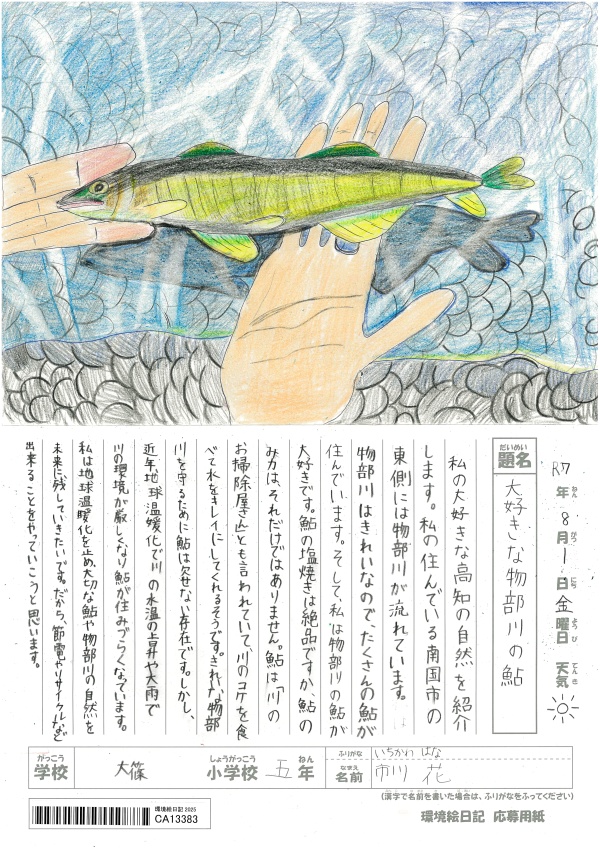 R7年8月1日金曜日 天気
ねん がつ にち ようび てんき
だいめい
題名
大好きな物部川の鮎
私の大好きな高知の自然を紹介
します。私の住んでいる南国市の
東側には物部川が流れています。
物部川はきれいなので、たくさんの鮎が
住んでいます。そして、私は物部川の鮎が
大好きです。鮎の塩焼きは絶品ですが、鮎の
み力は、それだけではありません。鮎は「川の
お掃除屋さん」とも言われていて、川のコケを食
べて水をキレイにしてくれるそうです。きれいな物部
川を守るために鮎は欠せない存在です。しかし、
近年、地球温媛化で川の水温の上昇や大雨で
川の環境が厳しくなり鮎が住みづらくなっています。
私は地球温暖化を止め、大切な鮎や物部川の自然を
未来に残していきたいです。だから、節電やリサイクルなど
出来ることをやっていこうと思います。
がっこう しょうがっこう ねん
学校 大篠 小学校 五年
ふりがな いちかわ はな
なまえ
名前 市川 花
(漢字で名前を書いた場合は、ふりがなをふってください)
環境絵日記 2025
CA13383
環境絵日記 応募用紙